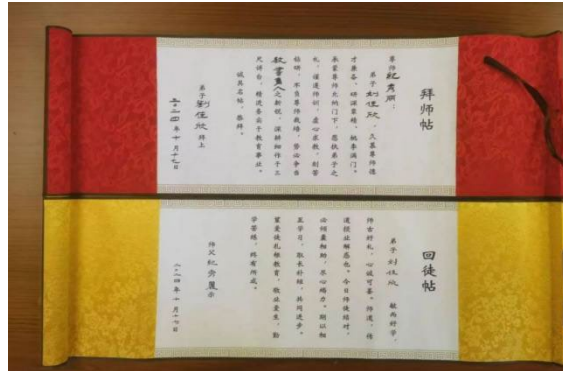 拜师帖
尊师纪秀丽：
弟子刘佳欣，久慕尊师德
才兼备，研深业精，桃李满门。
承蒙尊师允纳门下，愿执弟子之
礼，谨遵师训，虚心求教，刻苦
钻研，不负尊师栽培，誓必争当
教书育人之新锐，深耕细作于三
尺讲台，精进务实于教育事业。
诚具名帖，恭拜。
弟子刘佳欣拜上
二〇二四年十月十七日
回徒帖
弟子刘佳欣 敏而好学，
师古好礼，心诚可嘉。师道，传
道授业解惑也。今日师徒结对，
必倾囊相助，尽心竭力。期以相
互学习，取长补短，共同进步。
望爱徒扎根教育，敬业爱生，勤
学苦练，终有所成。
师父纪秀丽示
二〇二四年十月十七日